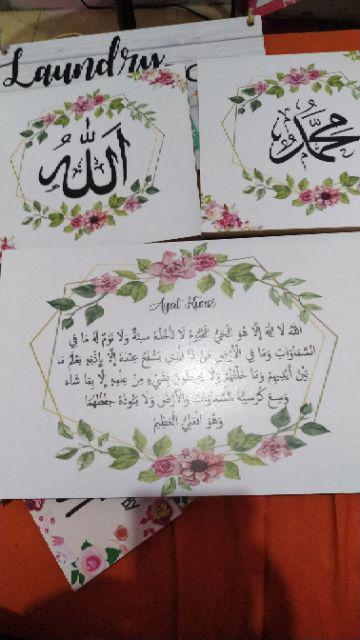 Laundry
الله
محمد
Ayat Kursi
اللهُ لَا إِلٰهَ إِلَّا هُوَ الْحَيُّ الْقَيُّوْمُ لَا تَأْخُذُهُ سِنَةٌ وَلَا نَوْمٌ لَهُ مَا فِي
السَّمَاوَاتِ وَمَا فِي الْأَرْضِ مَنْ ذَا الَّذِي يَشْفَعُ عِنْدَهُ إِلَّا بِإِذْنِهِ يَعْلَمُ مَا
بَيْنَ أَيْدِيهِمْ وَمَا خَلْفَهُمْ وَلَا يُحِيطُونَ بِشَيْءٍ مِنْ عِلْمِهِ إِلَّا بِمَا شَاءَ
وَسِعَ كُرْسِيُّهُ السَّمَاوَاتِ وَالْأَرْضَ وَلَا يَئُودُهُ حِفْظُهُمَا
وَهُوَ الْعَلِيُّ الْعَظِيمُ